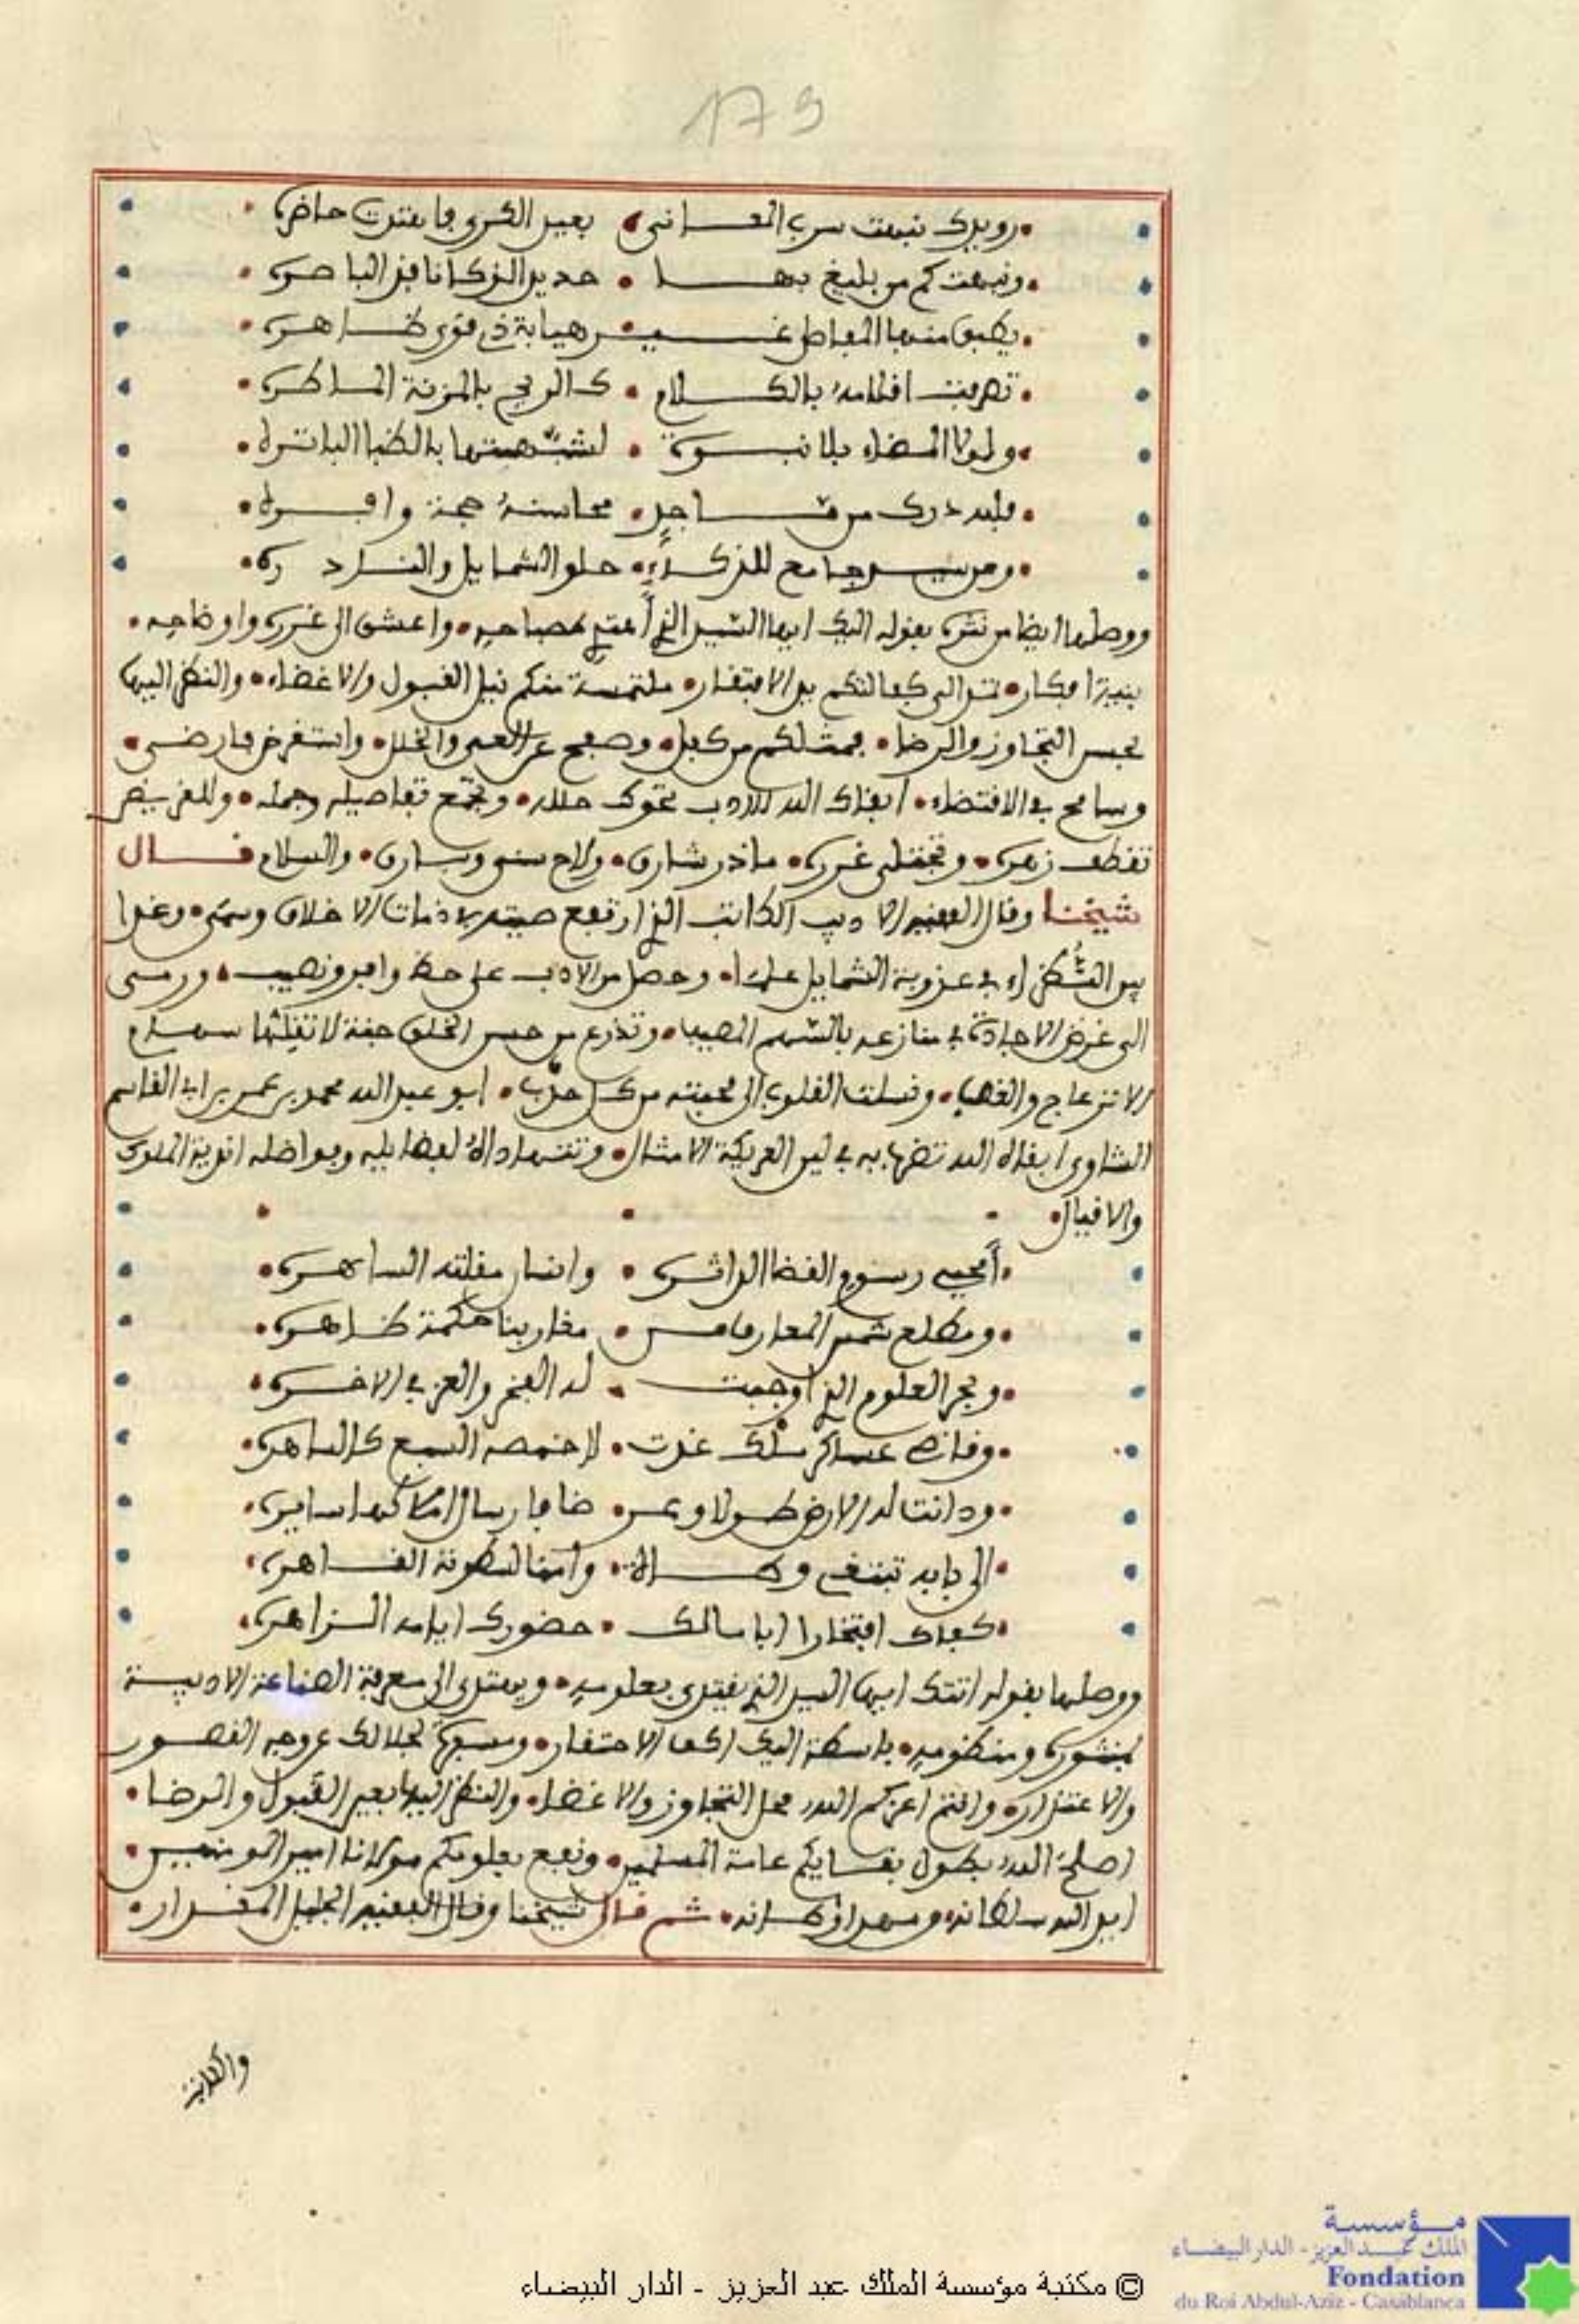 179
رويدك نبهت سرب المعاني بعيد الكرى فانثنت حاضره
ونبهت كم من بليغ بها حديد الذكا نافذ الباصره
يطبق منها المفاصل غير هيابة ذي قوى ظاهره
تصرفت اقلامه بالكلام كالريح بالمزنة الماطره
ولولا المضاء بلا نبوة لشبهتها بالظبا الباتره
فلله درك من فاجل محاسنه جمة وافره
ومن سيد جامع للذكاء حلو الشمايل والنادره
ووصلها ايضا من نثره بقوله اليك ايها السيد الذي أعتني بمصباحه واعشو الى غرره واوضاحه
بنية افكار تمتد الى كفالتكم يد الافتقار ملتمسة منكم نيل القبول والاغضاء والنظر اليها
بحسن التجاوز والرضا فمثلكم من كفل وصفح عن العي والخلل واستقرض فارضى
وسامح في الاقتضاء ابقاك الله للادب تحوك حلله وتجمع تفاصيله وجمله وللقريض
تقطف زهره وتجتلي غرره ما ذر شارق ولاح سنى وبارق والسلام قال
شيخنا وقال الفقيه الاديب الكاتب الذي ارتفع صيته بلاذمات الاخلاق وسمى وغدا
بين النظراء في عذوبة الشمايل علما وحصل من الادب على حظ وافر ونصيب ورمى
الى غرض الاجادة في منازعه بالسهم المصيب وتذرع من حسن الخلق جنة لا تفلتها سهام
الانزعاج والغضب ونسلت القلوب الى محبته من كل حدب ابو عبد الله محمد بن عمر بن ابي القاسم
الشاوي ابقاه الله تضرب به في لين العريكة الامثال وتتهاداه لفضايله وفواضله اندية الملوك
والاقيال
أمحيي رسوم القضا الداثره وانسان مقلته الساهره
ومطلع شمس المعارف من مغاربنا حكمة ظاهره
وبحر العلوم الذي اوجبت له الفخر والعز في الاخره
وقاضي عساكر ملك غدت لاخمصه السبع كالساهره
ودانت له الارض طولا وعرضا فارسال املاكها سايره
الى بابه تبتغي وصاله وأمنا لسطوته القاهره
كفاك افتخارا ابا سالك حضورك ايامه الزاهره
ووصلها بقوله اتتك ايها السيد الذي يقتدى بعلومه ويهتدى الى معرفة الصناعة الادبية
بمنثوره ومنظومه باسطة اليك اكف الاحتقار ومسفرة لجلالك عن وجه القصور
والاعتذار وانتم اعزكم الله محل التجاوز والاغضاء والنظر اليها بعين القبول والرضا
اصلح الله بطول بقايكم عامة المسلمين ونفع بعلومكم مولانا امير المومنين
ايد الله سلطانه ومهد اوطانه ثم قال شيخنا وقال الفقيه الجليل المقدار
والكلاينة
© مكتبة مؤسسة الملك عبد العزيز - الدار البيضاء
مؤسسة
الملك عبد العزيز - الدار البيضاء
Fondation
du Roi Abdul-Aziz - Casablanca